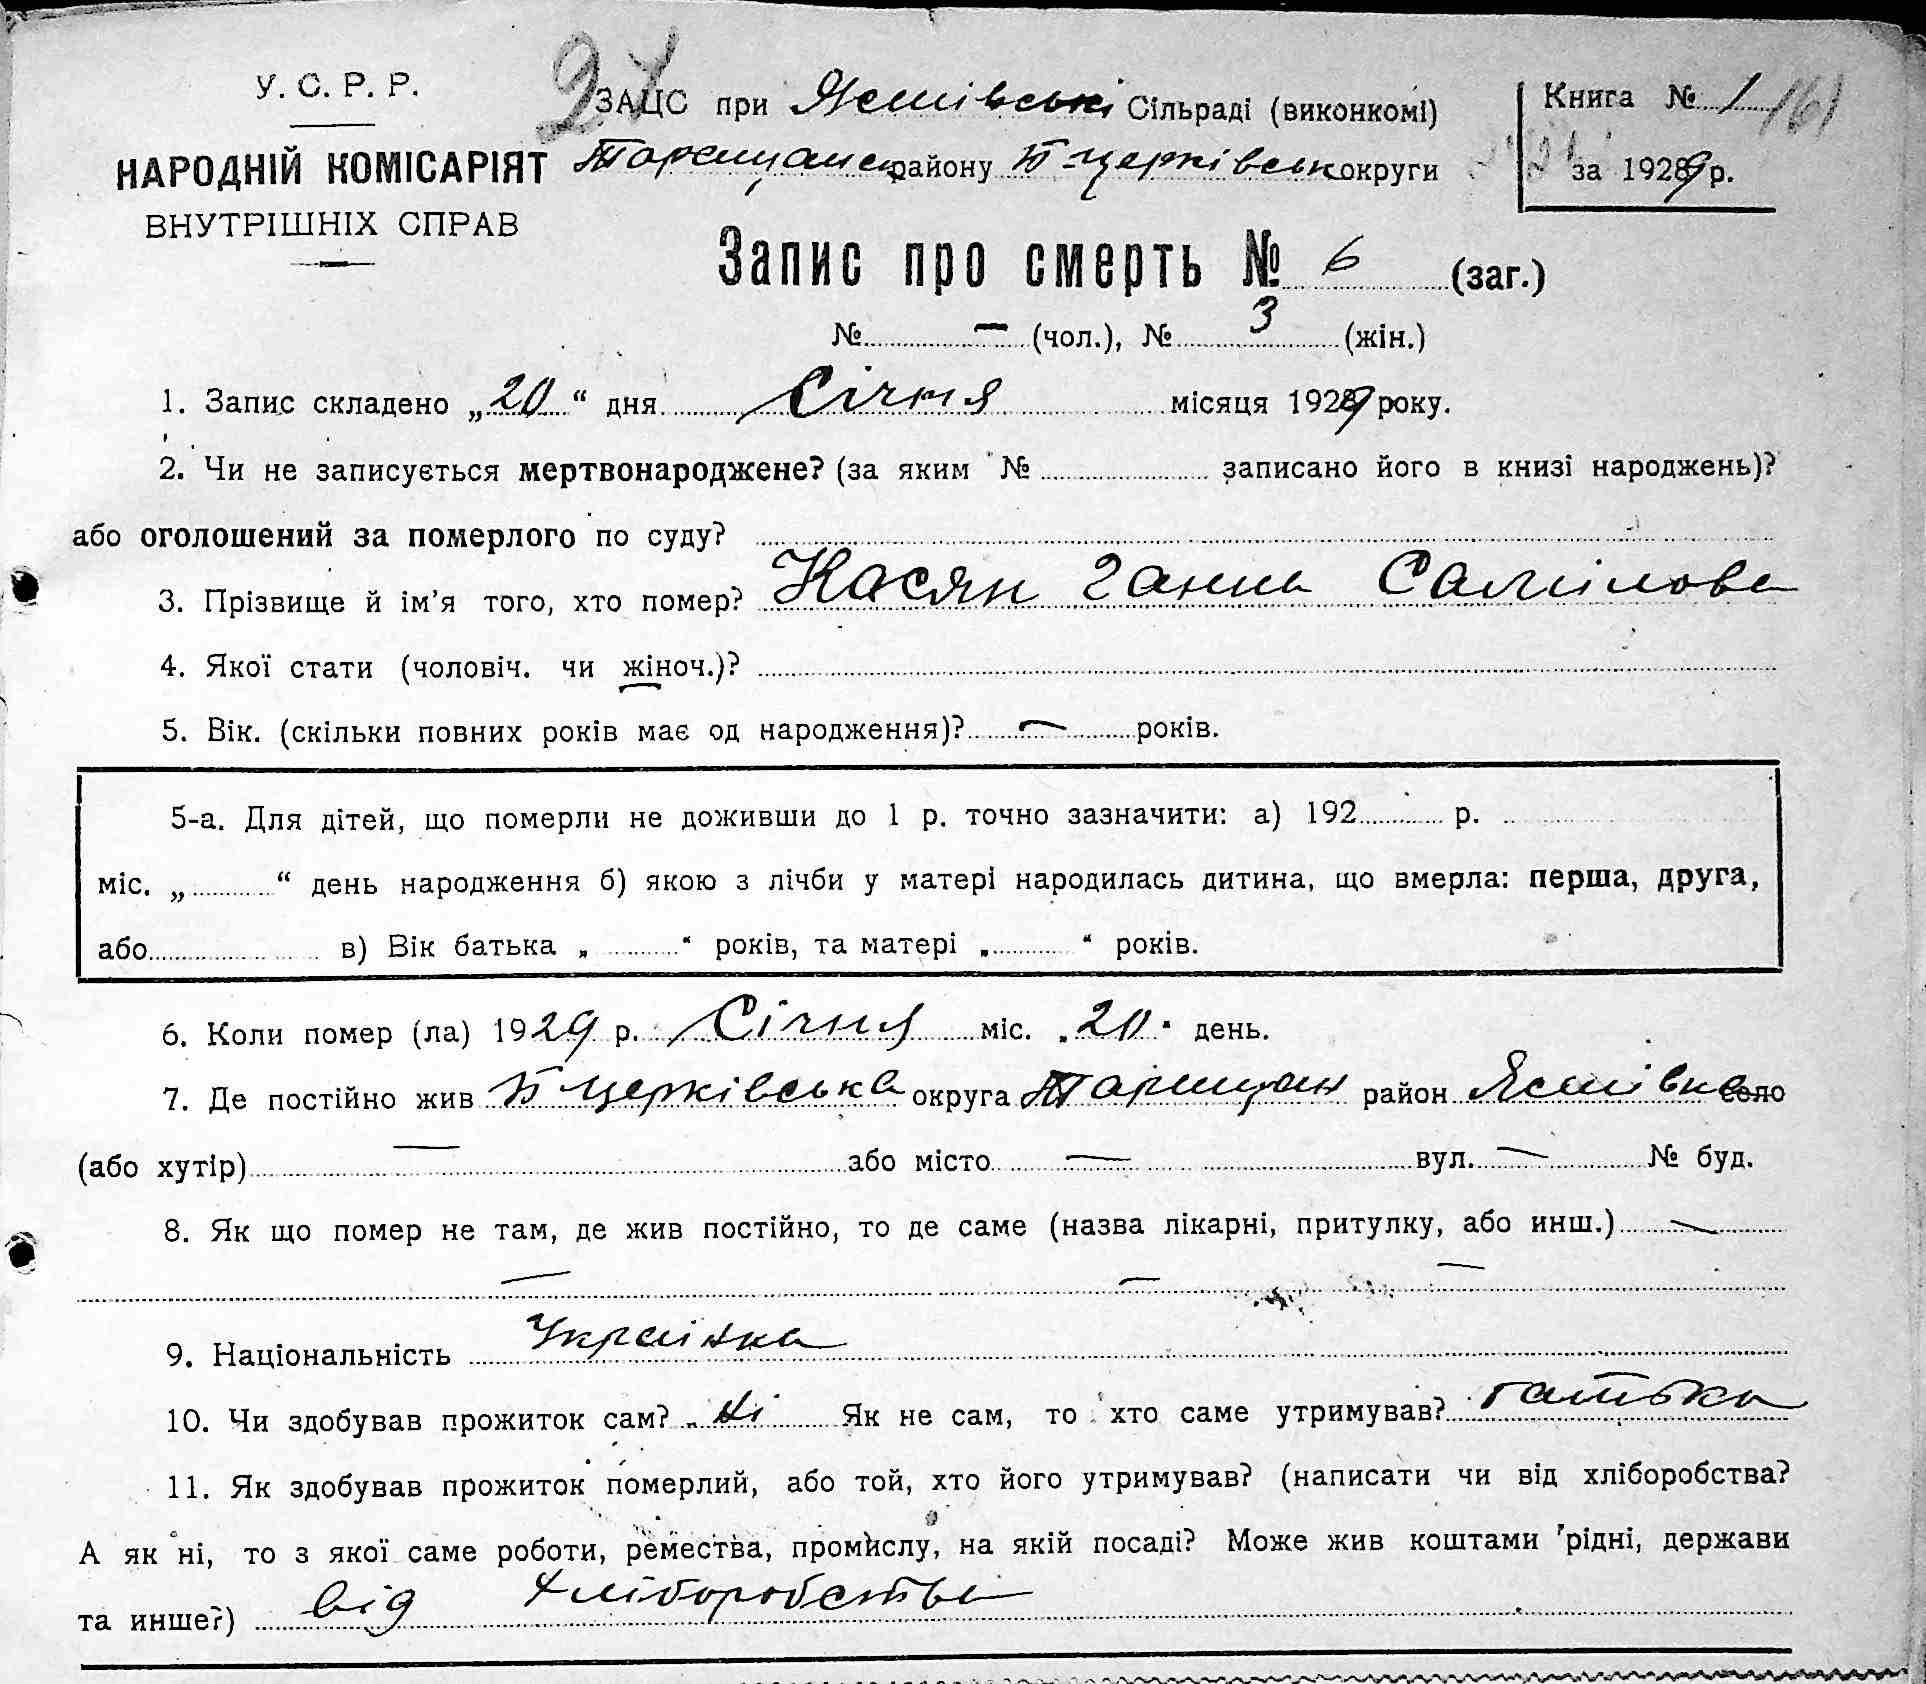 У. С. Р. Р.
НАРОДНІЙ КОМІСАРІЯТ
ВНУТРІШНІХ СПРАВ
27
ЗАЦС при Ясшівські Сільраді (виконкомі)
Таращанс району Б-церківськ округи
Книга № 1 (6)
за 1929 р.
Запис про смерть № 6 (заг.)
№ — (чол.), № 3 (жін.)
1. Запис складено „20“ дня Січня місяця 1929 року.
2. Чи не записується мертвонароджене? (за яким № записано його в книзі народжень)?
або оголошений за померлого по суду?
3. Прізвище й ім'я того, хто помер? Касян Ганна Самілова
4. Якої стати (чоловіч. чи жіноч.)?
5. Вік. (скільки повних років має од народження)? — років.
5-а. Для дітей, що померли не доживши до 1 р. точно зазначити: а) 192 р.
міс. „ “ день народження б) якою з лічби у матері народилась дитина, що вмерла: перша, друга,
або в) Вік батька „ “ років, та матері „ “ років.
6. Коли помер (ла) 1929 р. Січня міс. „20“ день.
7. Де постійно жив Б церківська округа Таращан район село
(або хутір) — або місто — вул. — № буд.
8. Як що помер не там, де жив постійно, то де саме (назва лікарні, притулку, або инш.) —
— — —
9. Національність Українка
10. Чи здобував прожиток сам? ні Як не сам, то хто саме утримував? батько
11. Як здобував прожиток померлий, або той, хто його утримував? (написати чи від хліборобства?
А як ні, то з якої саме роботи, ремества, промислу, на якій посаді? Може жив коштами рідні, держави
та инше?) від хліборобства